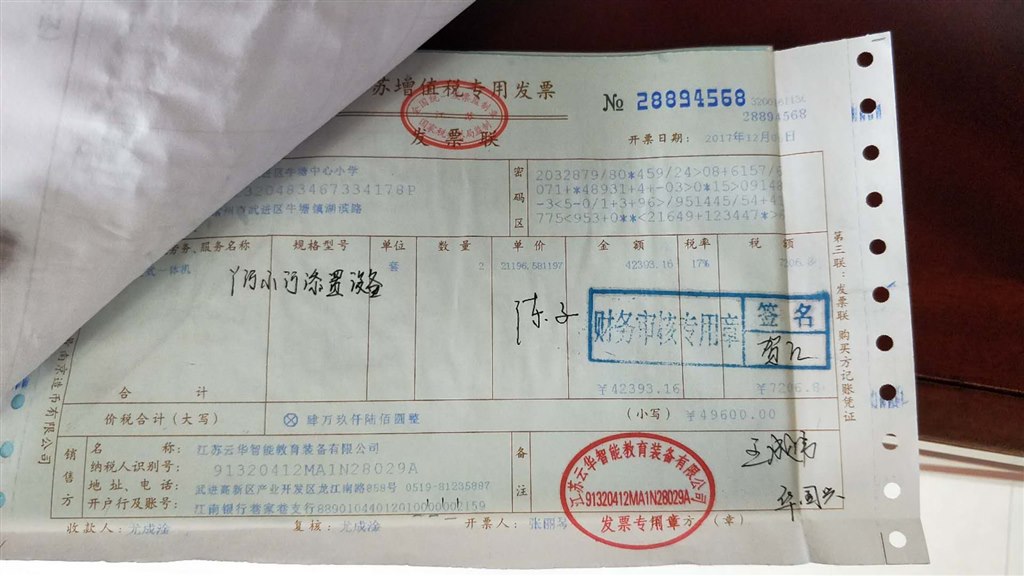 苏增值税专用发票
发票联
№ 28894568
28894568
开票日期: 2017年12月
区牛塘中心小学
320483467334178P
武进区牛塘镇湖滨路
密码区
2032879/80*459/24>08+6157/5
071+*48931+4+-03>0*15>09148
-3<5-0/1+3+96>/951445/54+4
775<953+0**<21649+123447*>
务、服务名称 规格型号 单位 数量 单价 金额 税率 税额
一体机 套 2 21196.581197 42393.16 17% 7206.8
陈子
财务审核专用章 签名
贺江
合计 ¥42393.16 ¥7206.8
价税合计(大写) ⊗ 肆万玖仟陆佰圆整 (小写) ¥49600.00
销售方
名称: 江苏云华智能教育装备有限公司
纳税人识别号: 91320412MA1N28029A
地址、电话: 武进高新区产业开发区龙江南路058号 0519-81235887
开户行及账号: 江南银行巷家巷支行88901044012010000002159
备注
江苏云华智能教育装备有限公司
91320412MA1N28029A
发票专用章
方:(章)
华国兴
收款人: 尤成淦 复核: 尤成淦 开票人: 张丽琴
第三联:发票联 购买方记账凭证